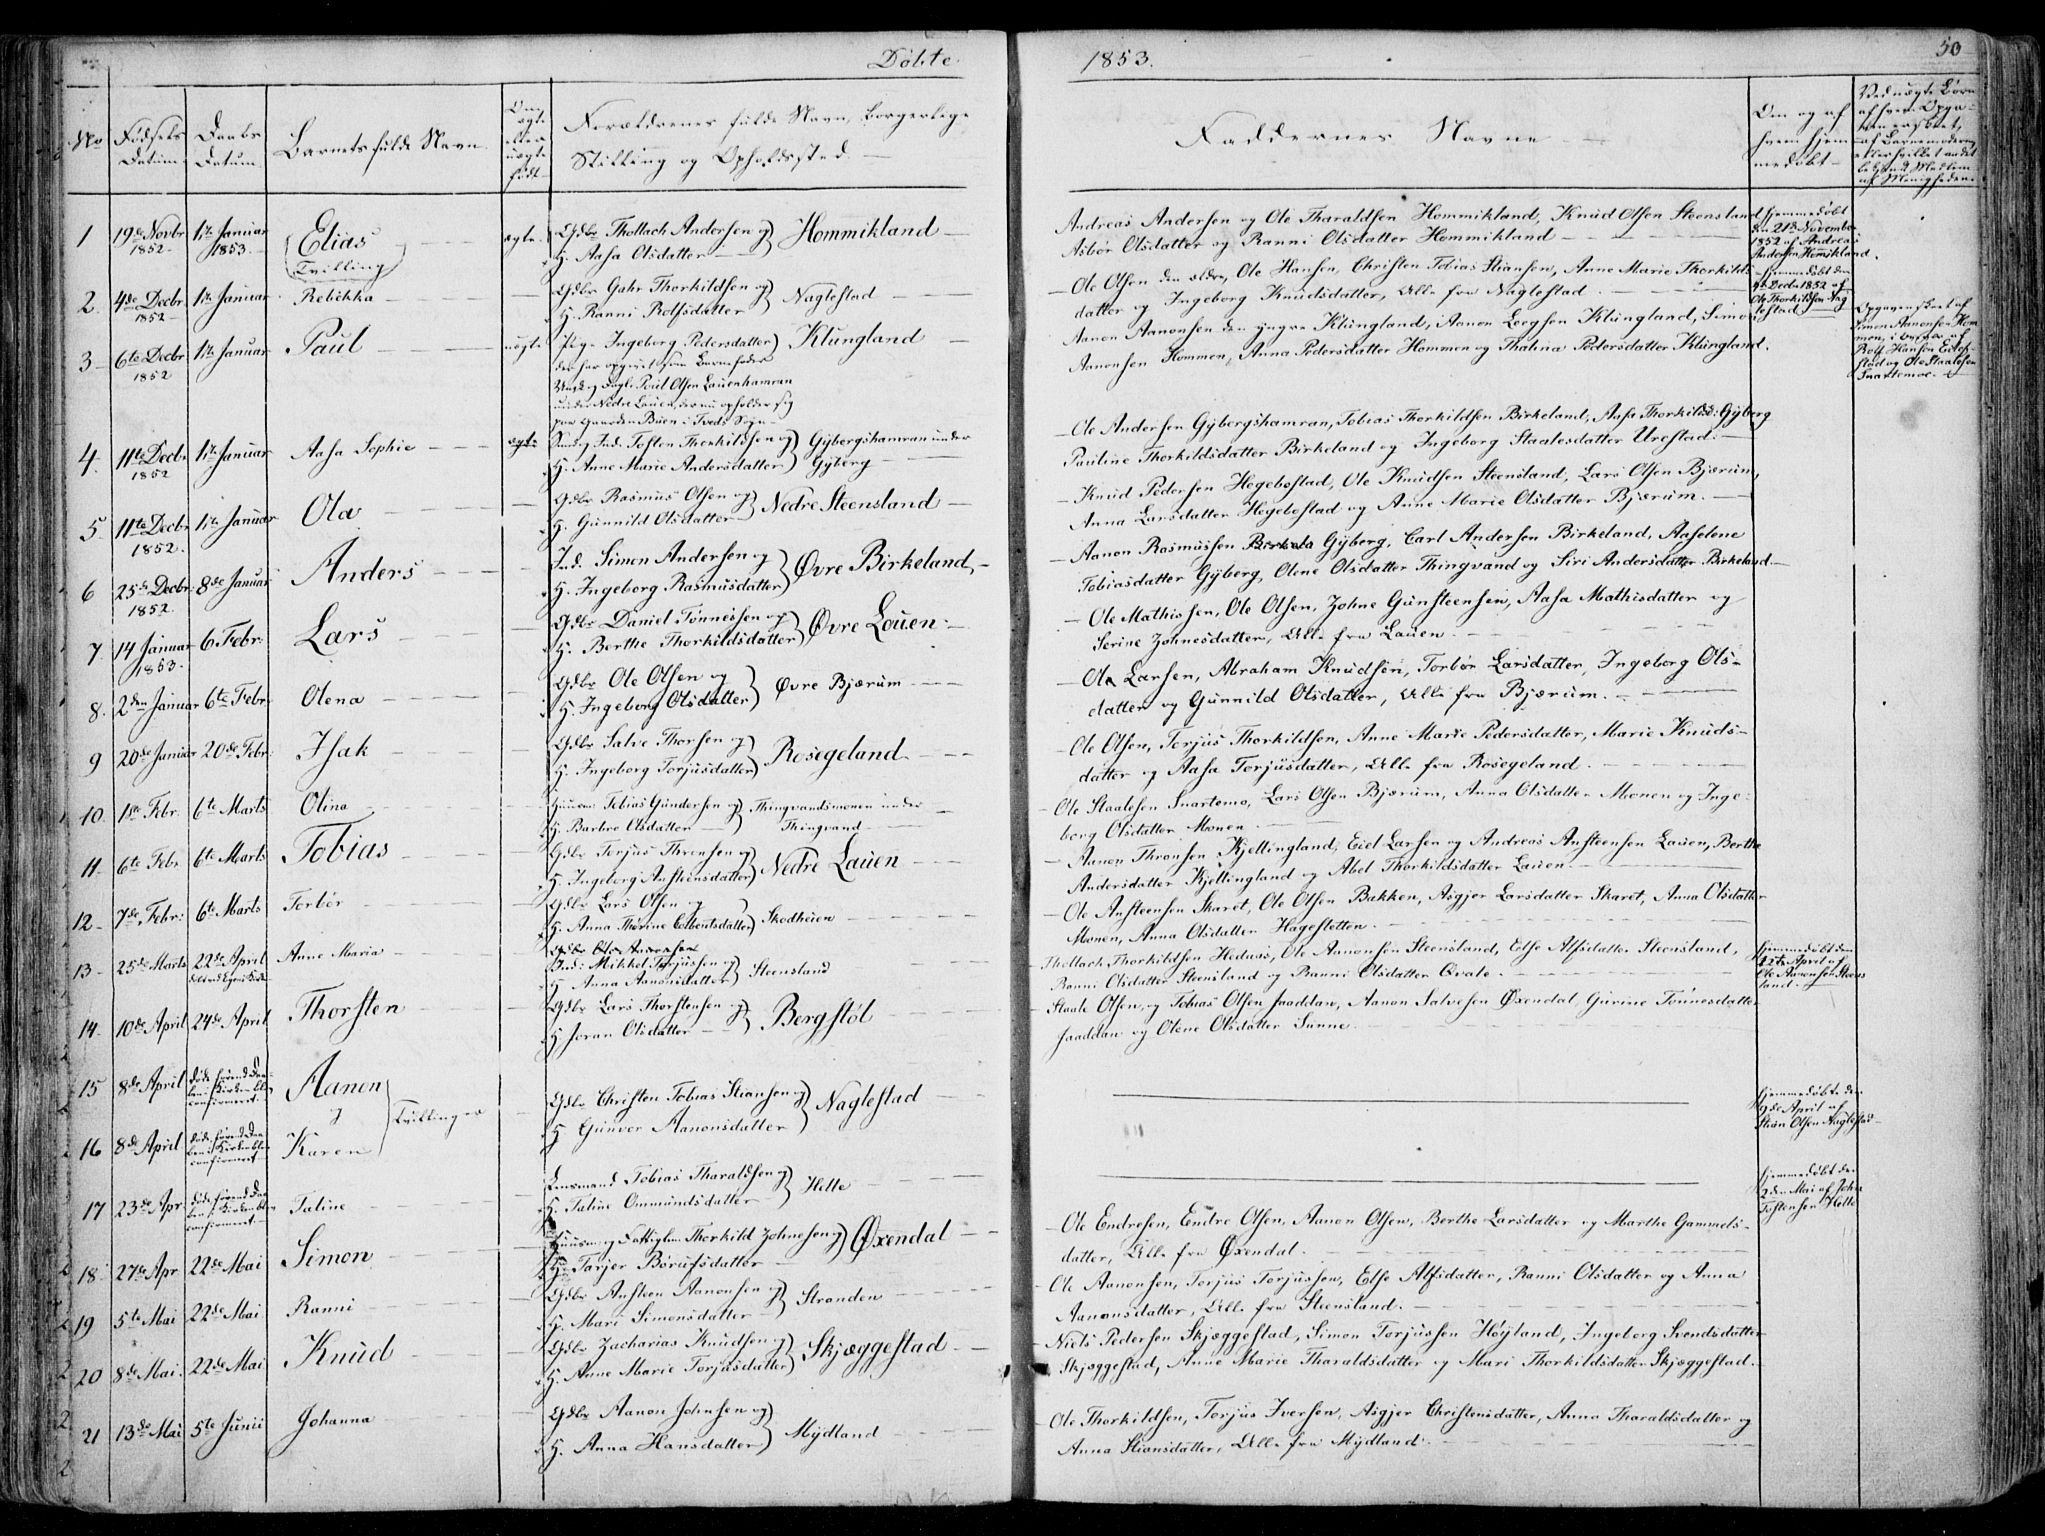 Døbte
1853.
50
No
Fødsels
Datum
Daabs
Datum
Barnets fulde Navn
Om
ægte
eller
uægte
født
Forældrenes fulde Navn, borgerlige
Stilling og Opholdssted
Faddernes Navne
Om og af
hvem hjem
medøbt
Ved uægte Børn
1
19de Novbr
1852
1ste Januar
1853
Elias
Tvilling
ægte
Gdbr Thollach Andersen og
H. Aasa Olsdatter
Hommikland
Andreas Andersen og Ole Tharaldsen Hommikland, Knud Olsen Steensland
Asbør Olsdatter og Ranni Olsdatter Hommikland
hjemmedøbt
den 21de November
1852 af Andreas
Andersen Homikland
2
4de Decbr
1852
1ste Januar
Rebekka
Gdbr Gahr Thorkildsen og
H. Ranni Rolfsdatter
Naglestad
Ole Olsen den ældre, Ole Hansen, Christen Tobias Stiansen, Anne Marie Thorkilds-
datter og Ingeborg Knudsdatter, Alle fra Naglestad
hjemmedøbt den
Decbr 1852 af
Ole Thorkildsen Nag
lestad
3
6te Decbr
1852
1ste Januar
Paul
uægte
Pige Ingeborg Pedersdatter
Klungland
der har opgivet som Barnefader
Ungkarl Poul Olsen Lauenhamran
under Nedre Lauen, der nu opholder sig
paa Gaarden Buen i Tveds Sogn
Aanon Aanonsen den yngre Klungland, Aanon Leegsen Klungland, Simon
Aanonsen Hommen, Anna Pedersdatter Hommen og Thalina Pedersdatter Klungland.
Opgaven skeet af
Simon Aanonsen Hom
men, i Overvær af
Rolf Hansen
stad og Ole Staalesen
Snartemoe
4
11te Decbr
1852
1ste Januar
Aasa Sophie
ægte
Ind. Tosten Thorkildsen og
H. Anne Marie Andersdatter
Gyberghamran under
Gyberg
Ole Andersen Gybergshamran, Tobias Thorkildsen Birkeland, Aase Thorkilds: Gyberg
Pauline Thorkildsdatter Birkeland og Ingeborg Staalesdatter Urestad.
5
11te Decbr
1852
1ste Januar
Ola
Gdbr Rasmus Olsen og
H. Gunnild Olsdatter
Nedre Steensland
Knud Pedersen Hegebostad, Ole Knudsen Steensland, Lars Olsen Bjærum,
Anna Larsdatter Hegebostad og Anne Marie Olsdatter Bjærum.
6
25de Decbr
1852
8de Januar
Anders
Ind. Simon Andersen og
H. Ingeborg Rasmusdatter
Øvre Birkeland
Aanon Rasmussen Gyberg, Carl Andersen Birkeland, Aaselene
Tobiasdatter Gyberg, Olene Olsdatter Thingvand og Siri Andersdatter Birkeland.
7
14 Januar
1853
6 Febr.
Lars
Gdbr Daniel Tønnessen og
H. Berthe Thorkildsdatter
Øvre Lauen
Ole Mathissen, Ole Olsen, Zohne Gunsteensen, Aasa Mathisdatter og
Serine Zohnesdatter, Alle fra Lauen
8
2den Januar
6te Febr.
Olena
Gdbr Ole Olsen og
H. Ingeborg Olsdatter
Øvre Bjærum
Ole Larsen, Abraham Knudsen, Torbør Larsdatter, Ingeborg Ols-
datter og Gunnild Olsdatter, Alle fra Bjærum.
9
20de Januar
20de Febr.
Isak
Gdbr Salve Thorsen og
H. Ingeborg Torjusdatter
Rosegeland
Ole Olsen, Torjus Thorkildsen, Anne Marie Pedersdatter, Marie Knuds-
datter og Aasa Torjusdatter, Alle fra Rosegeland.
10
1ste Febr.
6te Marts
Olina
Huusm: Tobias Gundersen og
H. Barbro Olsdatter
Thingvandsmonen under
Thingvand
Ole Staalesen Snartemo, Lars Olsen Bjærum, Anna Olsdatter Monen og Inge-
borg Olsdatter Monen
11
6te Febr.
6te Marts
Tobias
Gdbr Torjus Thronsen og
H. Ingeborg Ansteensdatter
Nedre Lauen
Aanon Thronsen Kjellingland, Eiel Larsen og Andreas Ansteensen Lauen, Berthe
Andersdatter Kjellingland og Abel Thorkildsdatter Lauen.
12
7de Febr:
6te Marts
Torbør
Gdbr Lars Olsen og
H. Anna Thorine Colbentsdatter
Skodheien
Ole Ansteensen Skaret, Ole Olsen Bakken, Asgjer Larsdatter Skaret, Anna Olsdatter
Monen, Anna Olsdatter Hagesletten.
13
25de Marts
22de April
Anne Maria
Ind: Mikkel Torjussen og
H. Anna Aanonsdatter
Steensland
Thollach Thorkildsen Hedaas, Ole Aanonsen Steensland, Else Alfsdatter Steensland,
Ranni Olsdatter Steensland og Ranni Olsdatter Qvale.
hjemmedøbt den
April af
Ole Aanonsen Steens
land.
14
10de April
24de April
Thorsten
Gdbr Lars Thorstensen og
H. Joran Olsdatter
Bergstøl
Staale Olsen, og Tobias Olsen Faaddan, Aanon Salvesen Øxendal, Gurine Tønnesdatter
Faaddan og Olene Olsdatter Sunne.
15
8de April
døde førend Daa-
ben i Kirken blev
confirmeret
Aanon
og
Tvillinger
16
8de April
døde førend Daa-
ben i Kirken blev
confirmeret
Karen
Gdbr Christen Tobias Stiansen og
H. Gunvor Aanonsdatter
Naglestad
hjemmedøbte den
9de April af
Stian Olsen Naglestad
17
23de Apr
døde førend Daa-
ben i Kirken blev
confirmeret
Taline
Lensmand Tobias Tharaldsen og
H. Taline Ommundsdatter
Helle
hjemmedøbt den
2den Mai af John
Tostensen Helle
18
27de Apr
22de Mai
Simon
Huusm og Fattiglem Thorkild Zohnesen og
H. Tarjer Børufsdatter
Øxendal
Ole Endresen, Endre Olsen, Aanon Olsen, Berthe Larsdatter og Marthe Gammels-
datter, Alle fra Øxendal.
19
5te Mai
22de Mai
Ranni
Gdbr Ansteen Aanonsen og
H. Mari Simonsdatter
Stranden
Ole Aanonsen, Torjus Torjussen, Else Alfsdatter, Ranni Olsdatter og Anna
Aanonsdatter, Alle fra Steensland.
20
8de Mai.
22de Mai
Knud
Gdbr Zacharias Knudsen og
H. Anne Marie Torjusdatter
Skjæggestad
Niels Pedersen Skjæggestad, Simon Torjussen Høyland, Ingeborg Svendsdatter
Skjæggestad, Anne Marie Tharaldsdatter og Mari Thorkildsdatter Skjæggestad.
21
13de Mai
5te Junii
Johanna
Gdbr Aanon Johnsen og
H. Anna Hansdatter
Mydland
Ole Thorkildsen, Torjus Iversen, Asgjer Christensdatter, Anna Tharaldsdatter og
Anna Stiansdatter, Alle fra Mydland.